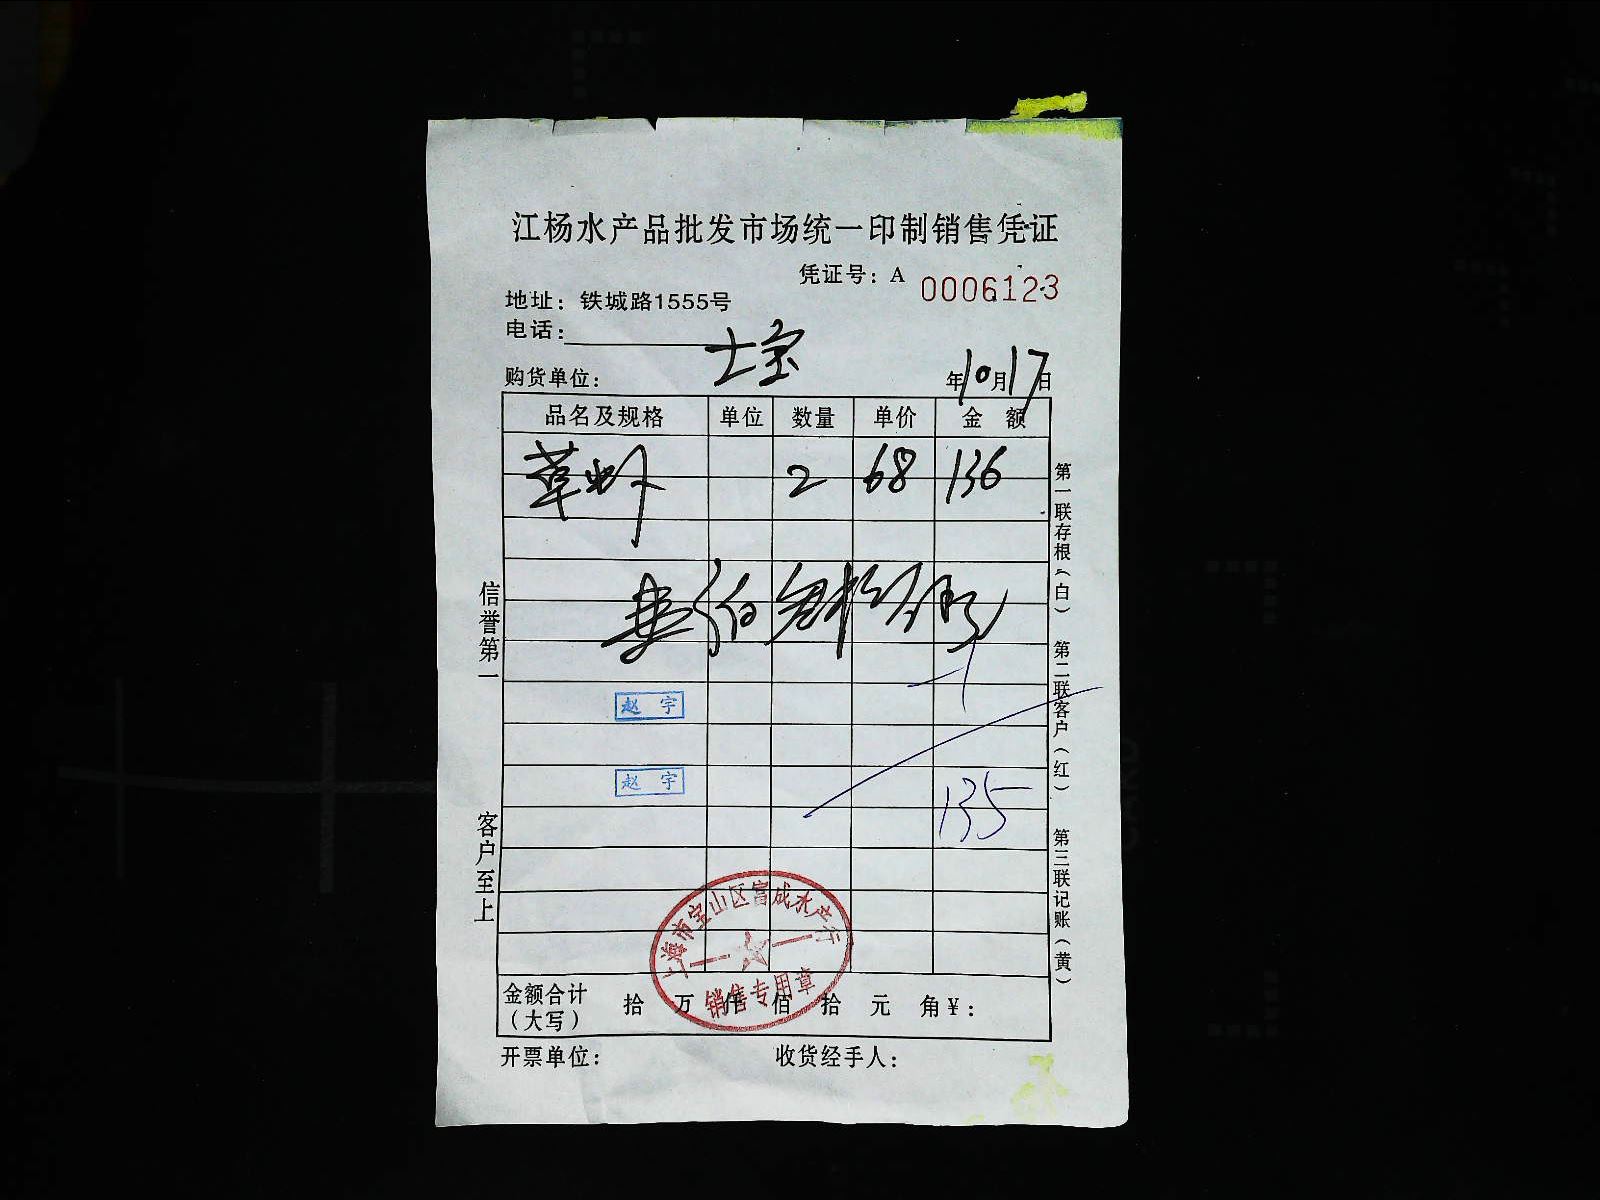 江杨水产品批发市场统一印制销售凭证
凭证号：A 0006123
地址：铁城路1555号
电话：
士宝
购货单位： 年10月17日
品名及规格 单位 数量 单价 金 额
草虾 2 68 136
赵 宇
赵 宇
135
上海市宝山区富成水产行
销售专用章
金额合计
（大写） 拾 万 仟 佰 拾 元 角 ¥：
开票单位： 收货经手人：
信誉第一
客户至上
第一联存根（白） 第二联客户（红） 第三联记账（黄）